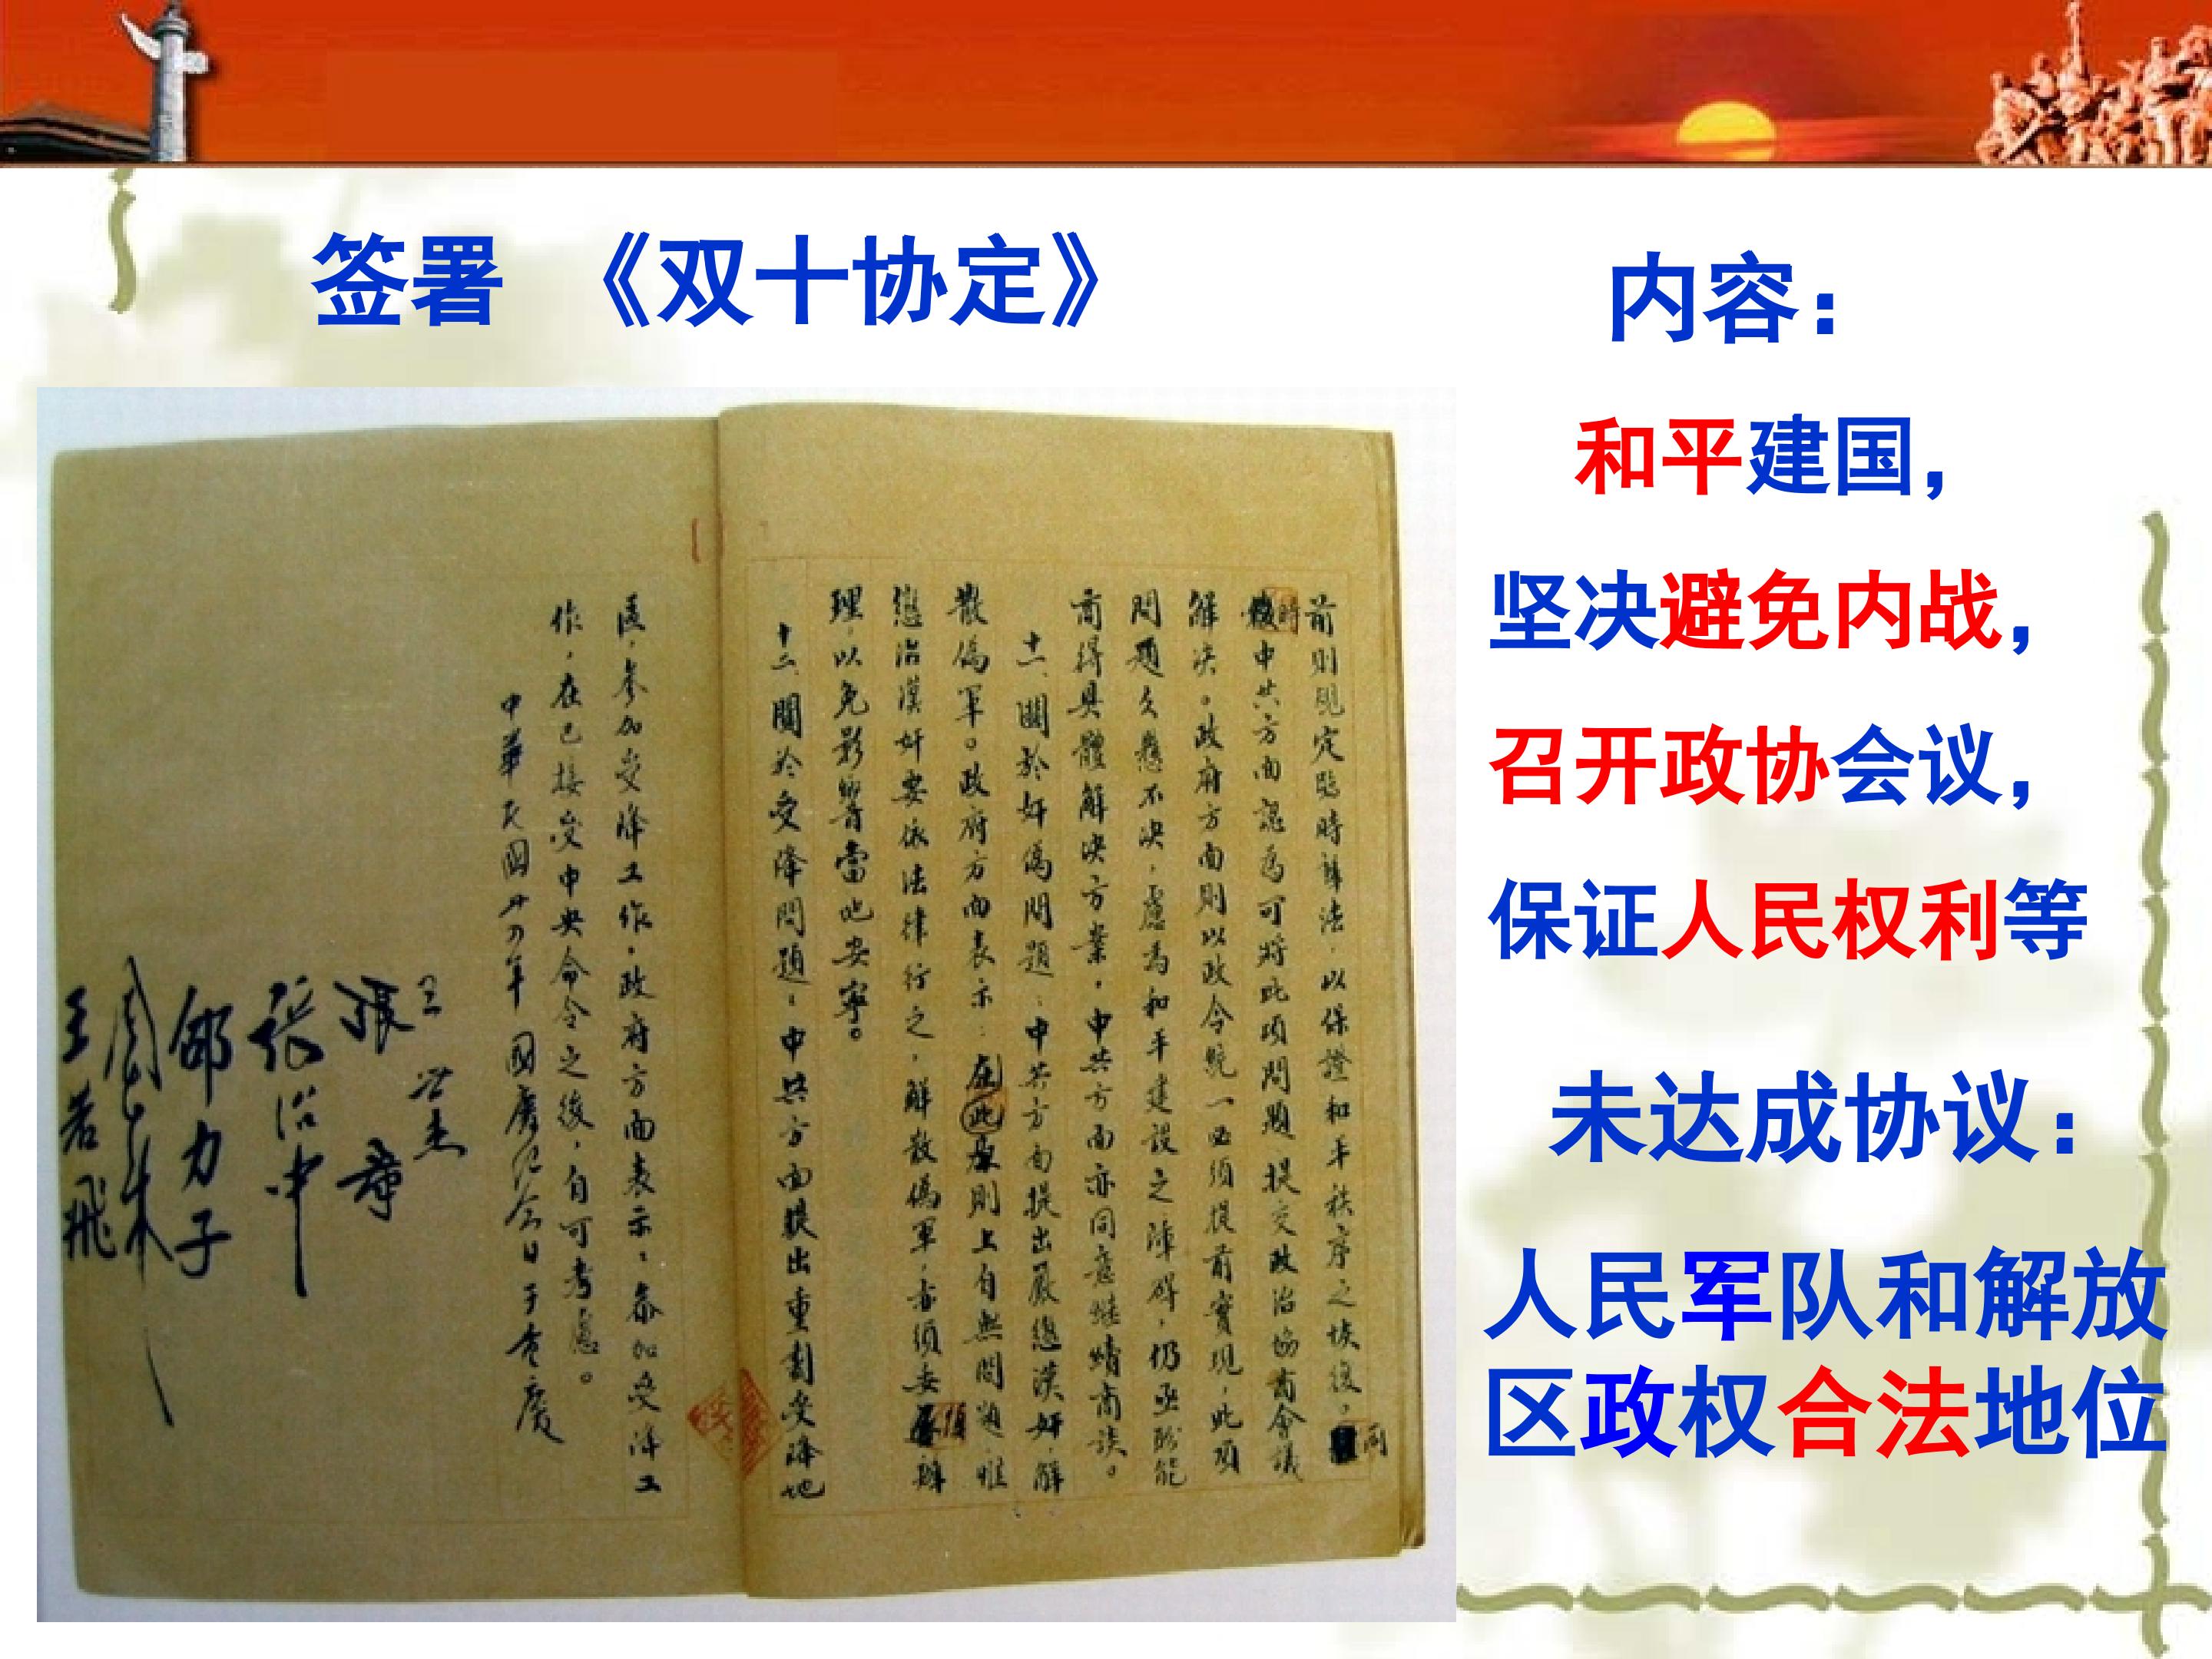 签署 《双十协定》
内容：
和平建国，
坚决避免内战，
召开政协会议，
保证人民权利等
未达成协议：
人民军队和解放
区政权合法地位
前則規定臨時辦法，以保證和平秩序之恢復，同
時中共方面認為可將此項問題提交政治協商會議
解決。政府方面則以政令統一必須提前實現，此項
問題久懸不決，慮為和平建設之障碍，仍亟盼能
商得具體解決方案。中共方面亦同意繼續商談。
十一、關於奸偽問題：中共方面提出嚴懲漢奸，解
散偽軍。政府方面表示：在此原則上自無問題，惟
懲治漢奸要依法律行之，解散偽軍，亦須妥慎辦
理，以免影響當地安寧。
十二、關於受降問題：中共方面提出重劃受降地
區，參加受降工作。政府方面表示：參加受降工
作，在已接受中央命令之後，自可考慮。
中華民國卅四年國慶紀念日于重慶
王世杰
張羣
張治中
邵力子
周恩来
王若飛